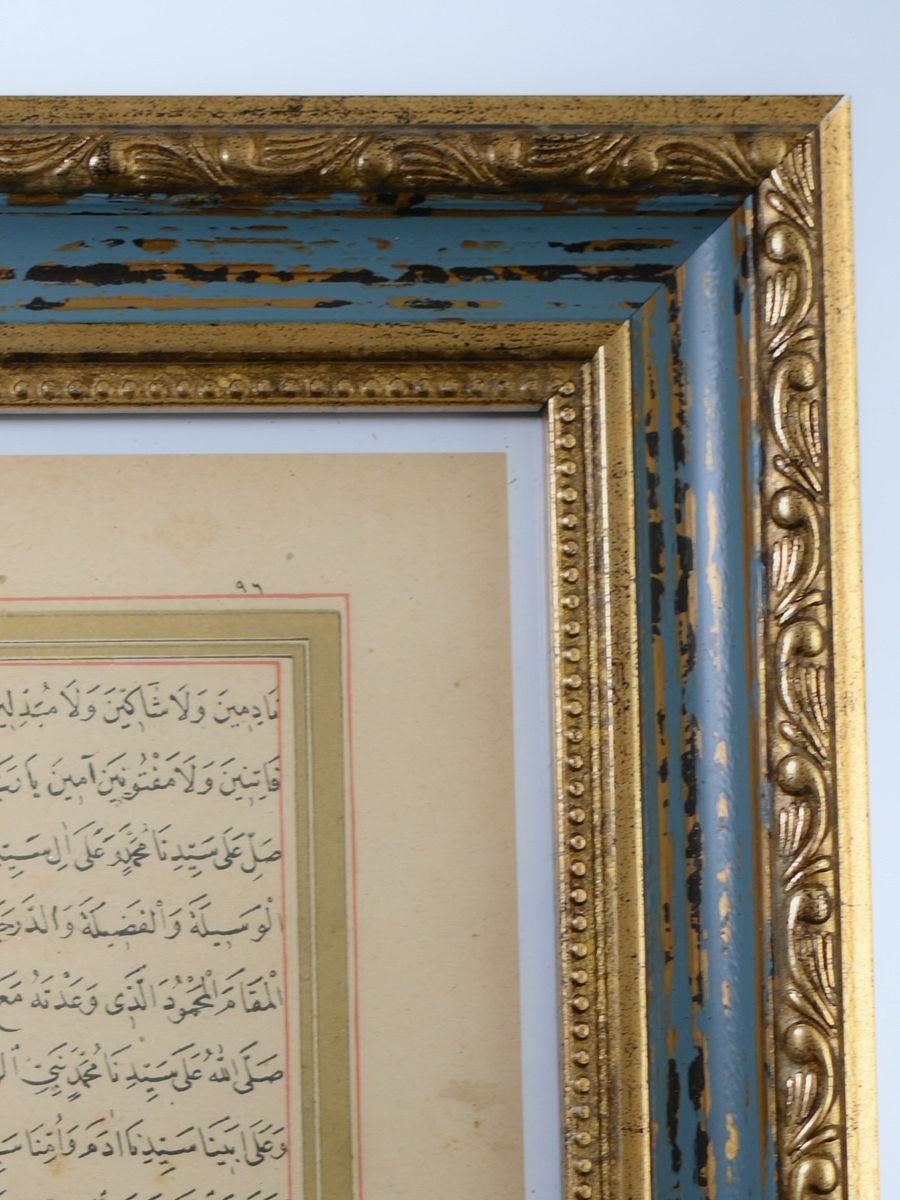 ٩٦
نَادِمِينَ وَلَا شَاكِّينَ وَلَا مُبَدِّلِينَ
فَاتِنِينَ وَلَا مَفْتُونِينَ آمِينَ يَا رَبَّ
صَلِّ عَلَى سَيِّدِنَا مُحَمَّدٍ وَعَلَى اٰلِ
الْوَسِيلَةَ وَالْفَضِيلَةَ
الْمَقَامَ الْمَحْمُودَ الَّذِى وَعَدْتَهُ
صَلَّى اللّٰهُ عَلَى سَيِّدِنَا مُحَمَّدٍ نَبِىِّ
وَعَلَى اَبِينَا سَيِّدِنَا اٰدَمَ وَاُمِّنَا